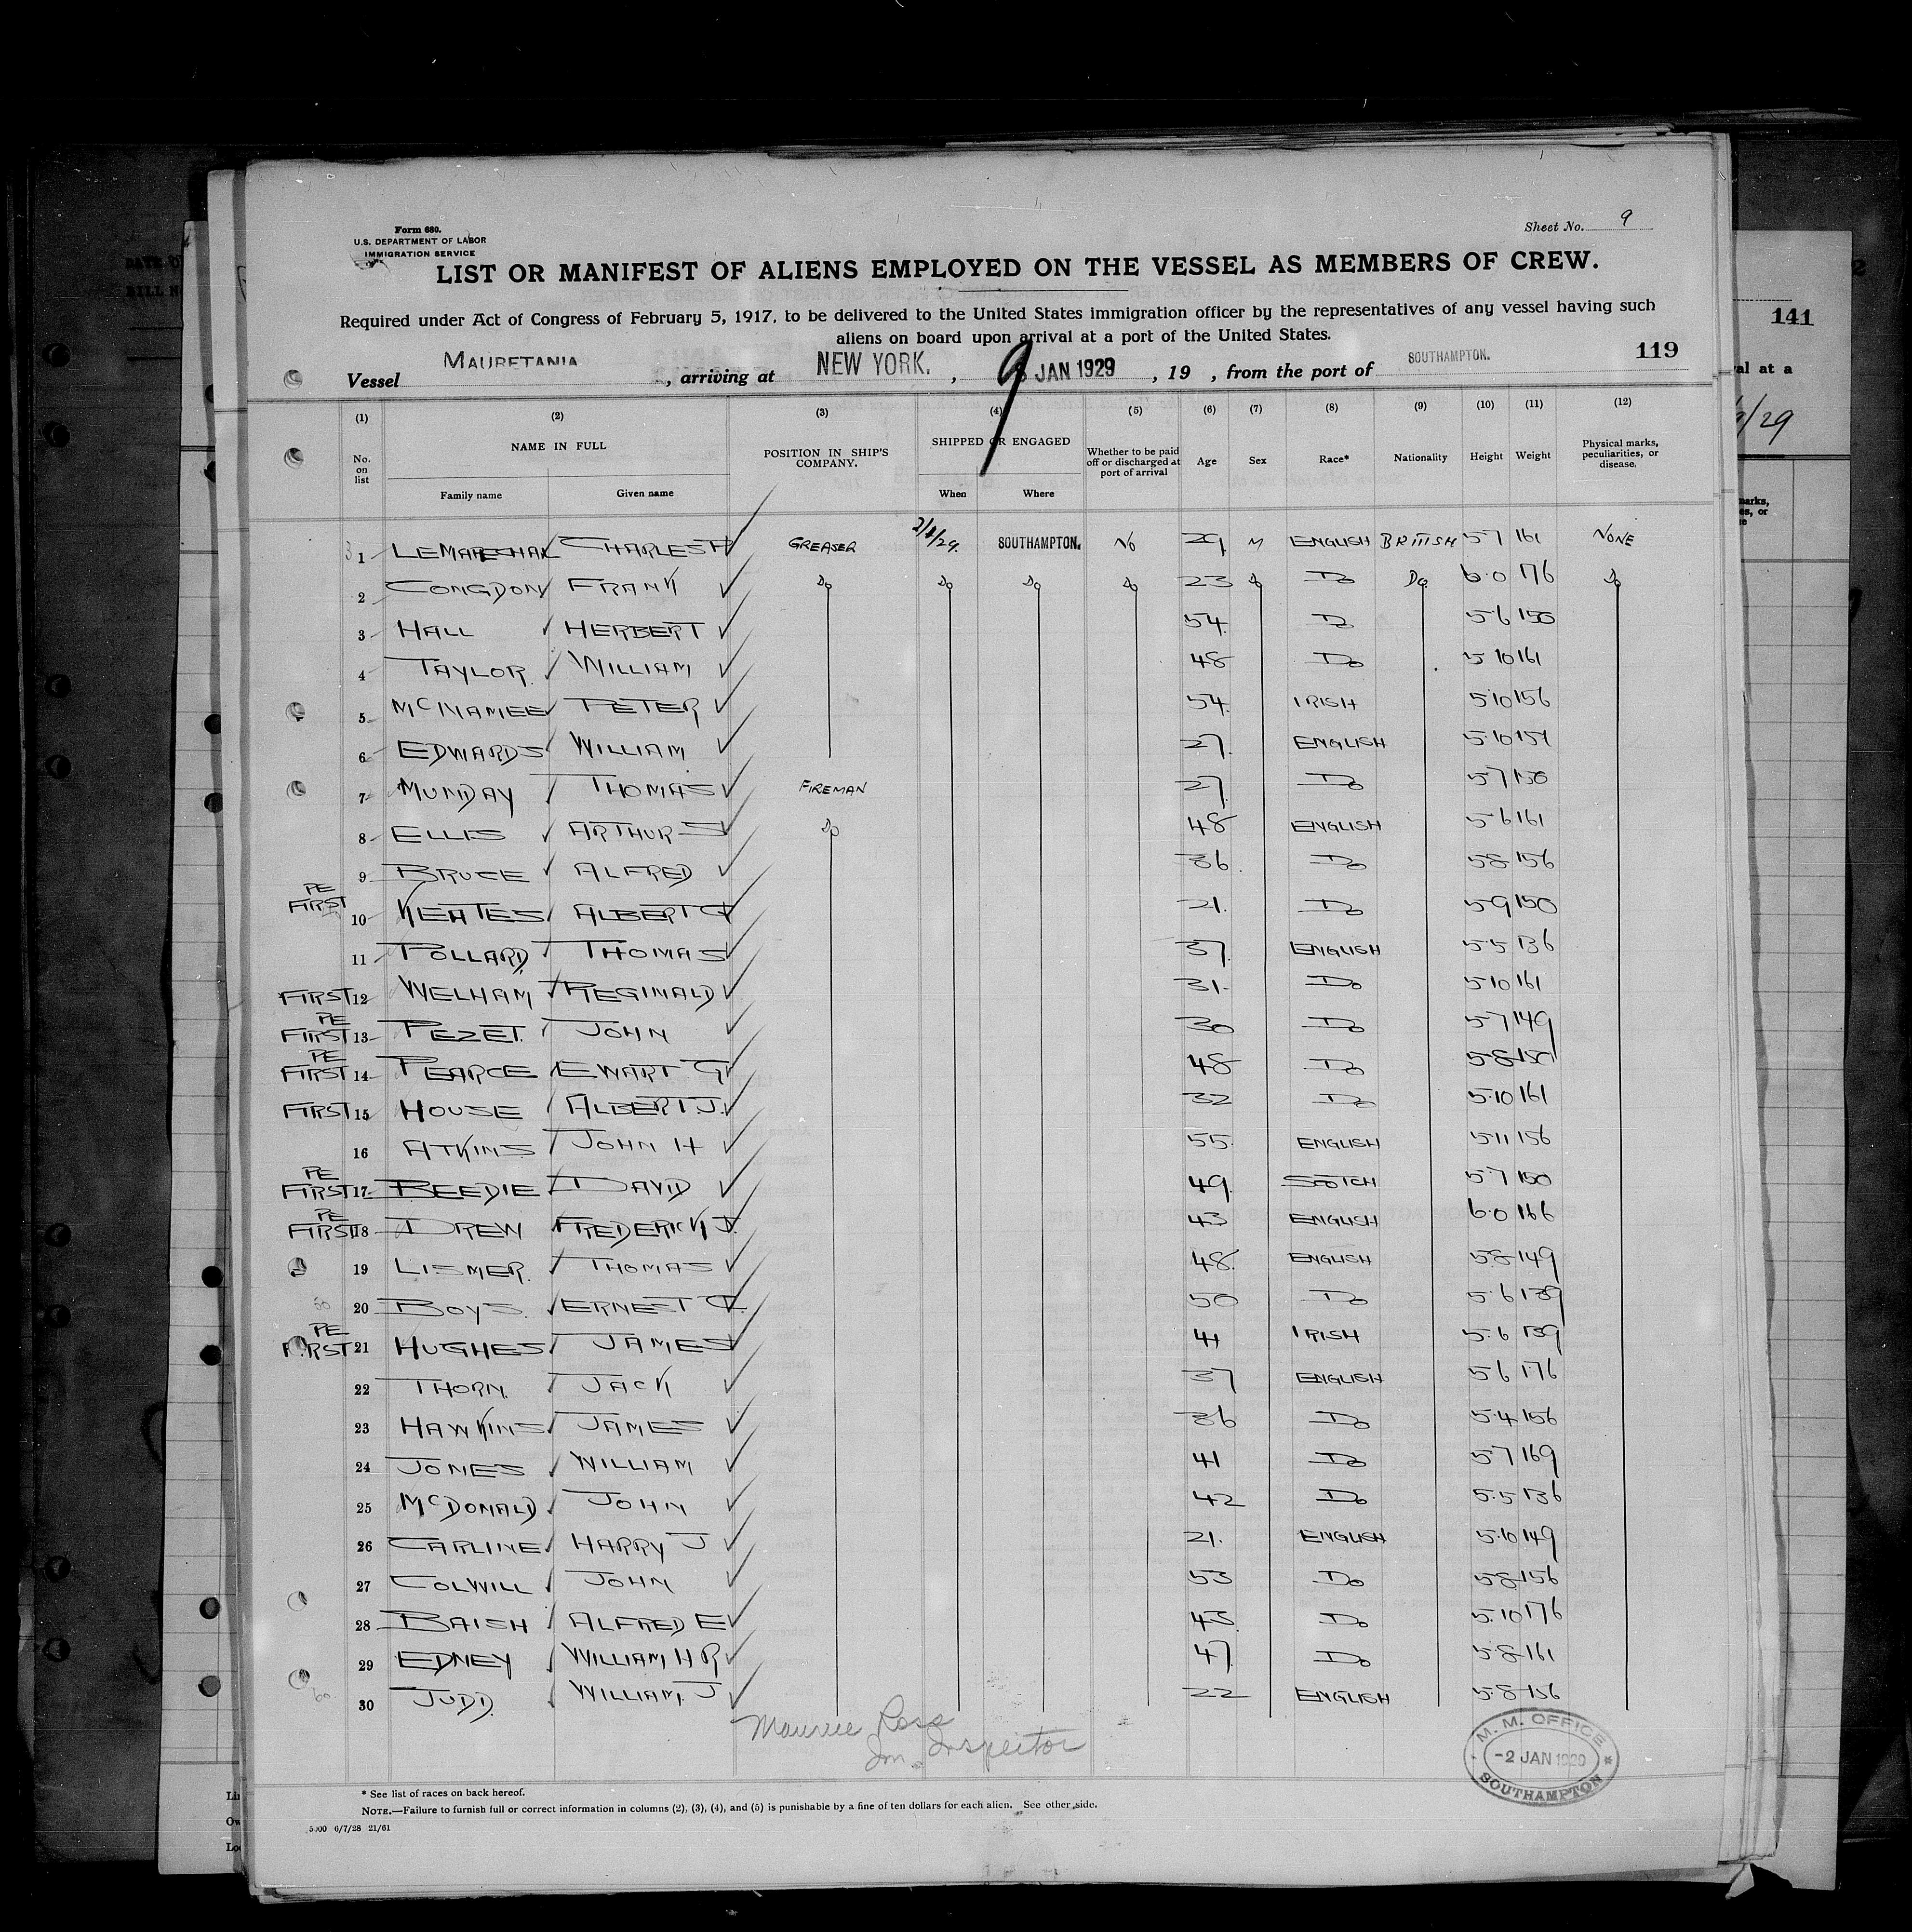 Sheet No. 9
Form 680.
U.S. DEPARTMENT OF LABOR
IMMIGRATION SERVICE
LIST OR MANIFEST OF ALIENS EMPLOYED ON THE VESSEL AS MEMBERS OF CREW.
Required under Act of Congress of February 5, 1917, to be delivered to the United States immigration officer by the representatives of any vessel having such
aliens on board upon arrival at a port of the United States.
119
141
Vessel MAURETANIA, arriving at NEW YORK., 9 JAN 1929, 19 , from the port of SOUTHAMPTON.
al at a
/29
(1) (2) (3) (4) (5) (6) (7) (8) (9) (10) (11) (12)
No. on list NAME IN FULL POSITION IN SHIP'S COMPANY. SHIPPED OR ENGAGED Whether to be paid off or discharged at port of arrival Age Sex Race* Nationality Height Weight Physical marks, peculiarities, or disease.
Family name Given name When Where
1 LEMARECHAL CHARLES H GREASER 2/1/29. SOUTHAMPTON. NO 29 M ENGLISH BRITISH 5 7 161 NONE
2 CONGDON FRANK Do Do Do Do 23 Do Do Do 6.0 176 Do
3 HALL HERBERT 54 Do 5.6 150
4 TAYLOR WILLIAM 48 Do 5 10 161
5 McNAMEE PETER 54 IRISH 5.10 156
6 EDWARDS WILLIAM 27 ENGLISH 5.10 154
7 MUNDAY THOMAS FIREMAN 27 Do 5 7 150
8 ELLIS ARTHUR S Do 48 ENGLISH 5 6 161
9 BRUCE ALFRED 36 Do 5 8 156
PE
FIRST 10 KEATES ALBERT G 21 Do 5 9 150
11 POLLARD THOMAS 37 ENGLISH 5.5 136
FIRST 12 WELHAM REGINALD 31 Do 5 10 161
PE
FIRST 13 PEZET JOHN 30 Do 5 7 149
PE
FIRST 14 PEARCE EWART G 48 Do 5 8 150
FIRST 15 HOUSE ALBERT J. 32 Do 5.10 161
16 ATKINS JOHN H 55 ENGLISH 5 11 156
PE
FIRST 17 BEEDIE DAVID 49 SCOTCH 5 7 150
PE
FIRST 18 DREW FREDERICK J. 43 ENGLISH 6.0 166
19 LISMER THOMAS 48 ENGLISH 5.8 149
20 BOYS ERNEST 50 Do 5 6 139
PE
FIRST 21 HUGHES JAMES 41 IRISH 5.6 139
22 THORN JACK 37 ENGLISH 5 6 176
23 HAWKINS JAMES 36 Do 5.4 156
24 JONES WILLIAM 41 Do 5 7 169
25 McDONALD JOHN 42 Do 5.5 136
26 CARLINE HARRY J 21 ENGLISH 5.10 149
27 COLWILL JOHN 53 Do 5 8 156
28 BAISH ALFRED E 43 Do 5.10 176
29 EDNEY WILLIAM H R 47 Do 5.8 161
30 JUDD WILLIAM J 22 ENGLISH 5.8 156
Maurice Ross
Im. Inspector
M. M. OFFICE
-2 JAN 1929
SOUTHAMPTON
* See list of races on back hereof.
NOTE.—Failure to furnish full or correct information in columns (2), (3), (4), and (5) is punishable by a fine of ten dollars for each alien. See other side.
5000 6/7/28 21/61